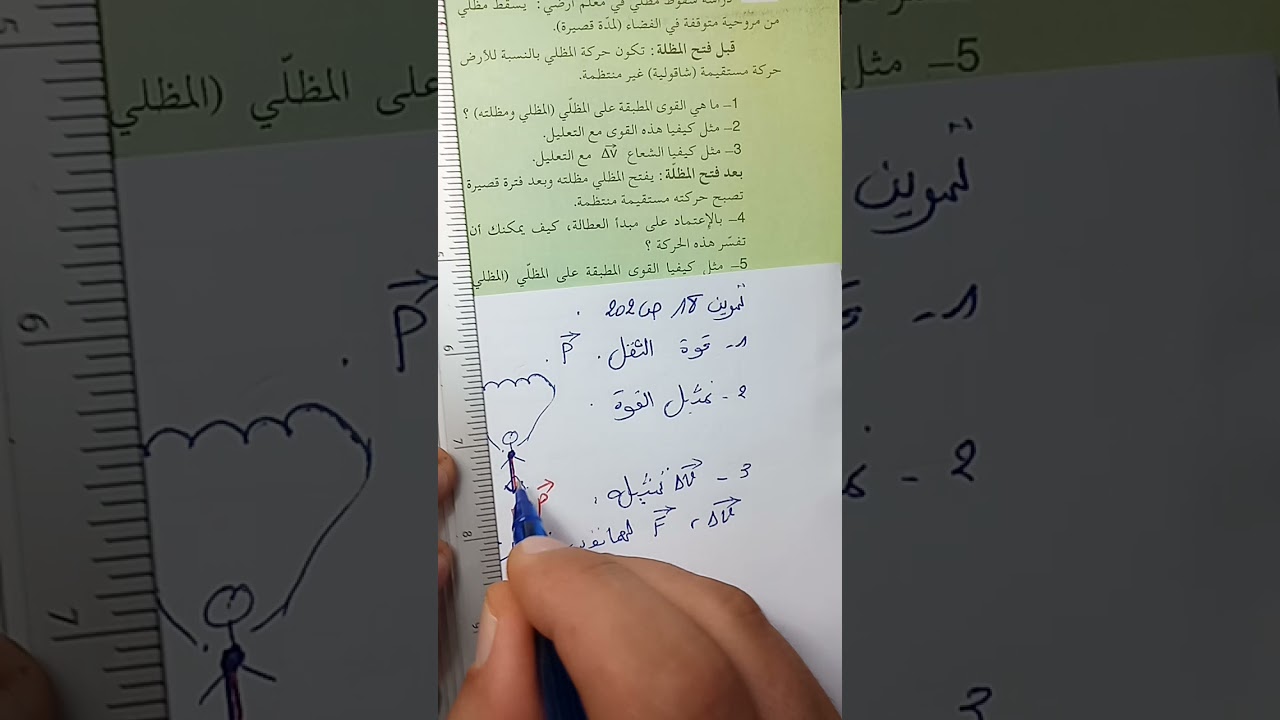 دراسة سقوط مظلي في معلم أرضي: يسقط مظلي
من مروحية متوقفة في الفضاء (لمدة قصيرة).
قبل فتح المظلة: تكون حركة المظلي بالنسبة للأرض
حركة مستقيمة (شاقولية) غير منتظمة.
1– ما هي القوى المطبقة على المظلّي (المظلي ومظلته) ؟
2– مثل كيفيا هذه القوى مع التعليل.
3– مثل كيفيا الشعاع ΔV مع التعليل.
بعد فتح المظلّة: يفتح المظلي مظلته وبعد فترة قصيرة
تصبح حركته مستقيمة منتظمة.
4– بالإعتماد على مبدأ العطالة، كيف يمكنك أن
تفسّر هذه الحركة ؟
5– مثل كيفيا القوى المطبقة على المظلّي (المظلي
تموين 18 ص 202.
1- قوة الثقل. P.
2- نمثل القوة.
P
3- ΔV نمثله.
ΔV، F لهما نفس
6
7
8
5– مثل
على المظلّي (المظلي
تموين
1-
P.
2-
3
6
7